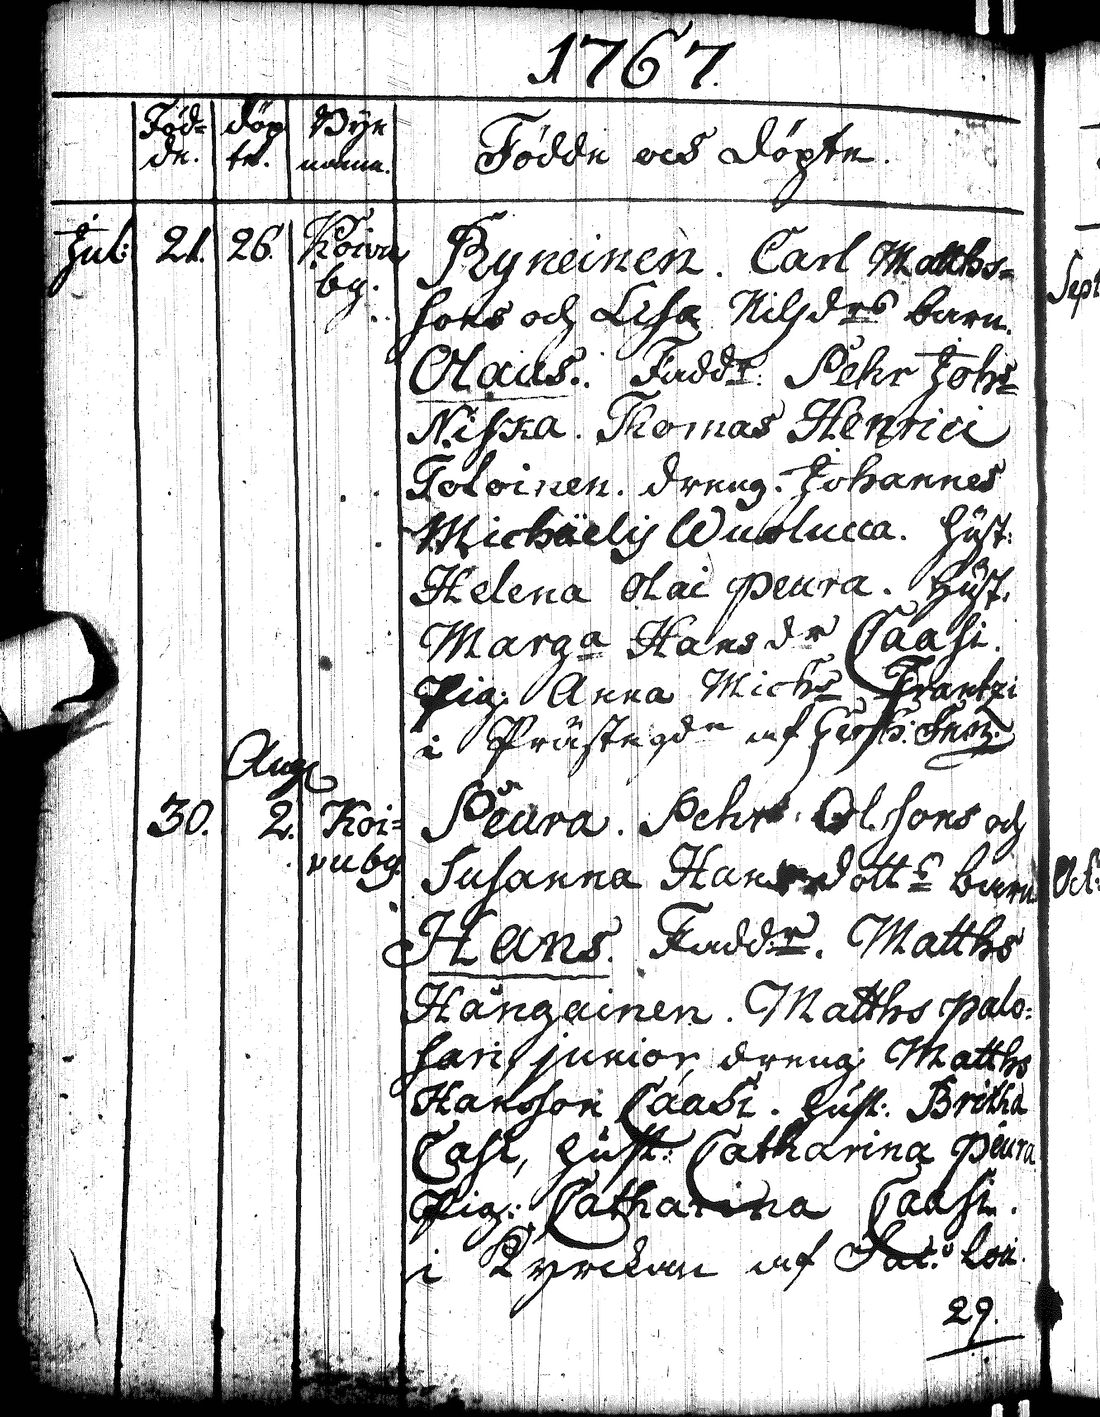 1767.
Föd= döp Bÿe
de. te. namn.
Födde och döpte.
Jul: 21. 26. Koivu
bÿ.
Ryneinen. Carl Matths=
sons och Lisa Nilsdrs barn.
Olaus. Faddr: Pehr Johs
Niska. Thomas Henrici
Toloinen. dreng. Johannes
Michäelis Wuolucca. Hüst:
Helena Olai Peura. Hüst.
Marga Hansdr Caasi.
Pig: Anna Michs Frantzi
i Prästegdn af
Aug
30. 2. Koi=
vubÿ.
Peura. Pehr Ol.sons och
Susanna Hansdotts barn
Hans. Faddr. Matths
Hängäinen. Matths Palo=
sari, junior, dreng: Matths
Hansson Caasi. hüst: Britha
Casi, hüst: Catharina Peura
Pig: Catharina Caasi.
i Kyrckan af Sac. loci.
29.
Sept
Oct: